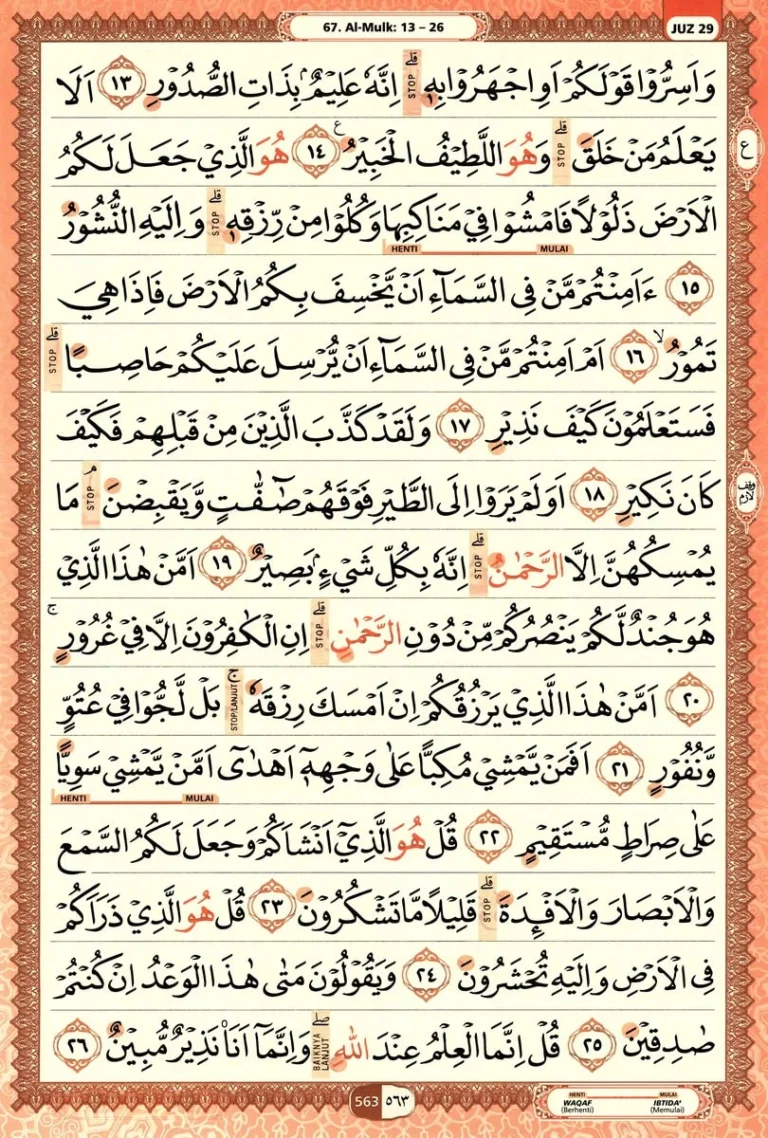 67. Al-Mulk: 13 – 26
JUZ 29
وَاَسِرُّوْا قَوْلَكُمْ اَوِ اجْهَرُوْا بِهٖۗ STOP اِنَّهٗ عَلِيْمٌۢ بِذَاتِ الصُّدُوْرِ ١٣ اَلَا
يَعْلَمُ مَنْ خَلَقَۗ STOP وَهُوَ اللَّطِيْفُ الْخَبِيْرُ ࣖ ١٤ هُوَ الَّذِيْ جَعَلَ لَكُمُ
ع
الْاَرْضَ ذَلُوْلًا فَامْشُوْا فِيْ مَنَاكِبِهَا وَكُلُوْا مِنْ رِّزْقِهٖۗ STOP وَاِلَيْهِ النُّشُوْرُ
HENTI MULAI
١٥ ءَاَمِنْتُمْ مَّنْ فِى السَّمَاۤءِ اَنْ يَّخْسِفَ بِكُمُ الْاَرْضَ فَاِذَا هِيَ
تَمُوْرُۙ ١٦ اَمْ اَمِنْتُمْ مَّنْ فِى السَّمَاۤءِ اَنْ يُّرْسِلَ عَلَيْكُمْ حَاصِبًاۗ STOP
فَسَتَعْلَمُوْنَ كَيْفَ نَذِيْرِ ١٧ وَلَقَدْ كَذَّبَ الَّذِيْنَ مِنْ قَبْلِهِمْ فَكَيْفَ
كَانَ نَكِيْرِ ١٨ اَوَلَمْ يَرَوْا اِلَى الطَّيْرِ فَوْقَهُمْ صٰۤفّٰتٍ وَّيَقْبِضْنَۘ STOP مَا
وقف لازم
يُمْسِكُهُنَّ اِلَّا الرَّحْمٰنُۗ STOP اِنَّهٗ بِكُلِّ شَيْءٍۢ بَصِيْرٌ ١٩ اَمَّنْ هٰذَا الَّذِيْ
هُوَ جُنْدٌ لَّكُمْ يَنْصُرُكُمْ مِّنْ دُوْنِ الرَّحْمٰنِۗ STOP اِنِ الْكٰفِرُوْنَ اِلَّا فِيْ غُرُوْرٍۚ
٢٠ اَمَّنْ هٰذَا الَّذِيْ يَرْزُقُكُمْ اِنْ اَمْسَكَ رِزْقَهٗۚ STOP/LANJUT بَلْ لَّجُّوْا فِيْ عُتُوٍّ
وَّنُفُوْرٍ ٢١ اَفَمَنْ يَّمْشِيْ مُكِبًّا عَلٰى وَجْهِهٖٓ اَهْدٰىٓ اَمَّنْ يَّمْشِيْ سَوِيًّا
HENTI MULAI
عَلٰى صِرَاطٍ مُّسْتَقِيْمٍ ٢٢ قُلْ هُوَ الَّذِيْٓ اَنْشَاَكُمْ وَجَعَلَ لَكُمُ السَّمْعَ
وَالْاَبْصَارَ وَالْاَفْـِٕدَةَۗ STOP قَلِيْلًا مَّا تَشْكُرُوْنَ ٢٣ قُلْ هُوَ الَّذِيْ ذَرَاَكُمْ
فِى الْاَرْضِ وَاِلَيْهِ تُحْشَرُوْنَ ٢٤ وَيَقُوْلُوْنَ مَتٰى هٰذَا الْوَعْدُ اِنْ كُنْتُمْ
صٰدِقِيْنَ ٢٥ قُلْ اِنَّمَا الْعِلْمُ عِنْدَ اللّٰهِ ۖ BAIKNYA LANJUT وَاِنَّمَآ اَنَا۠ نَذِيْرٌ مُّبِيْنٌ ٢٦
563 ٥٦٣
HENTI MULAI
WAQAF IBTIDA'
(Berhenti) (Memulai)